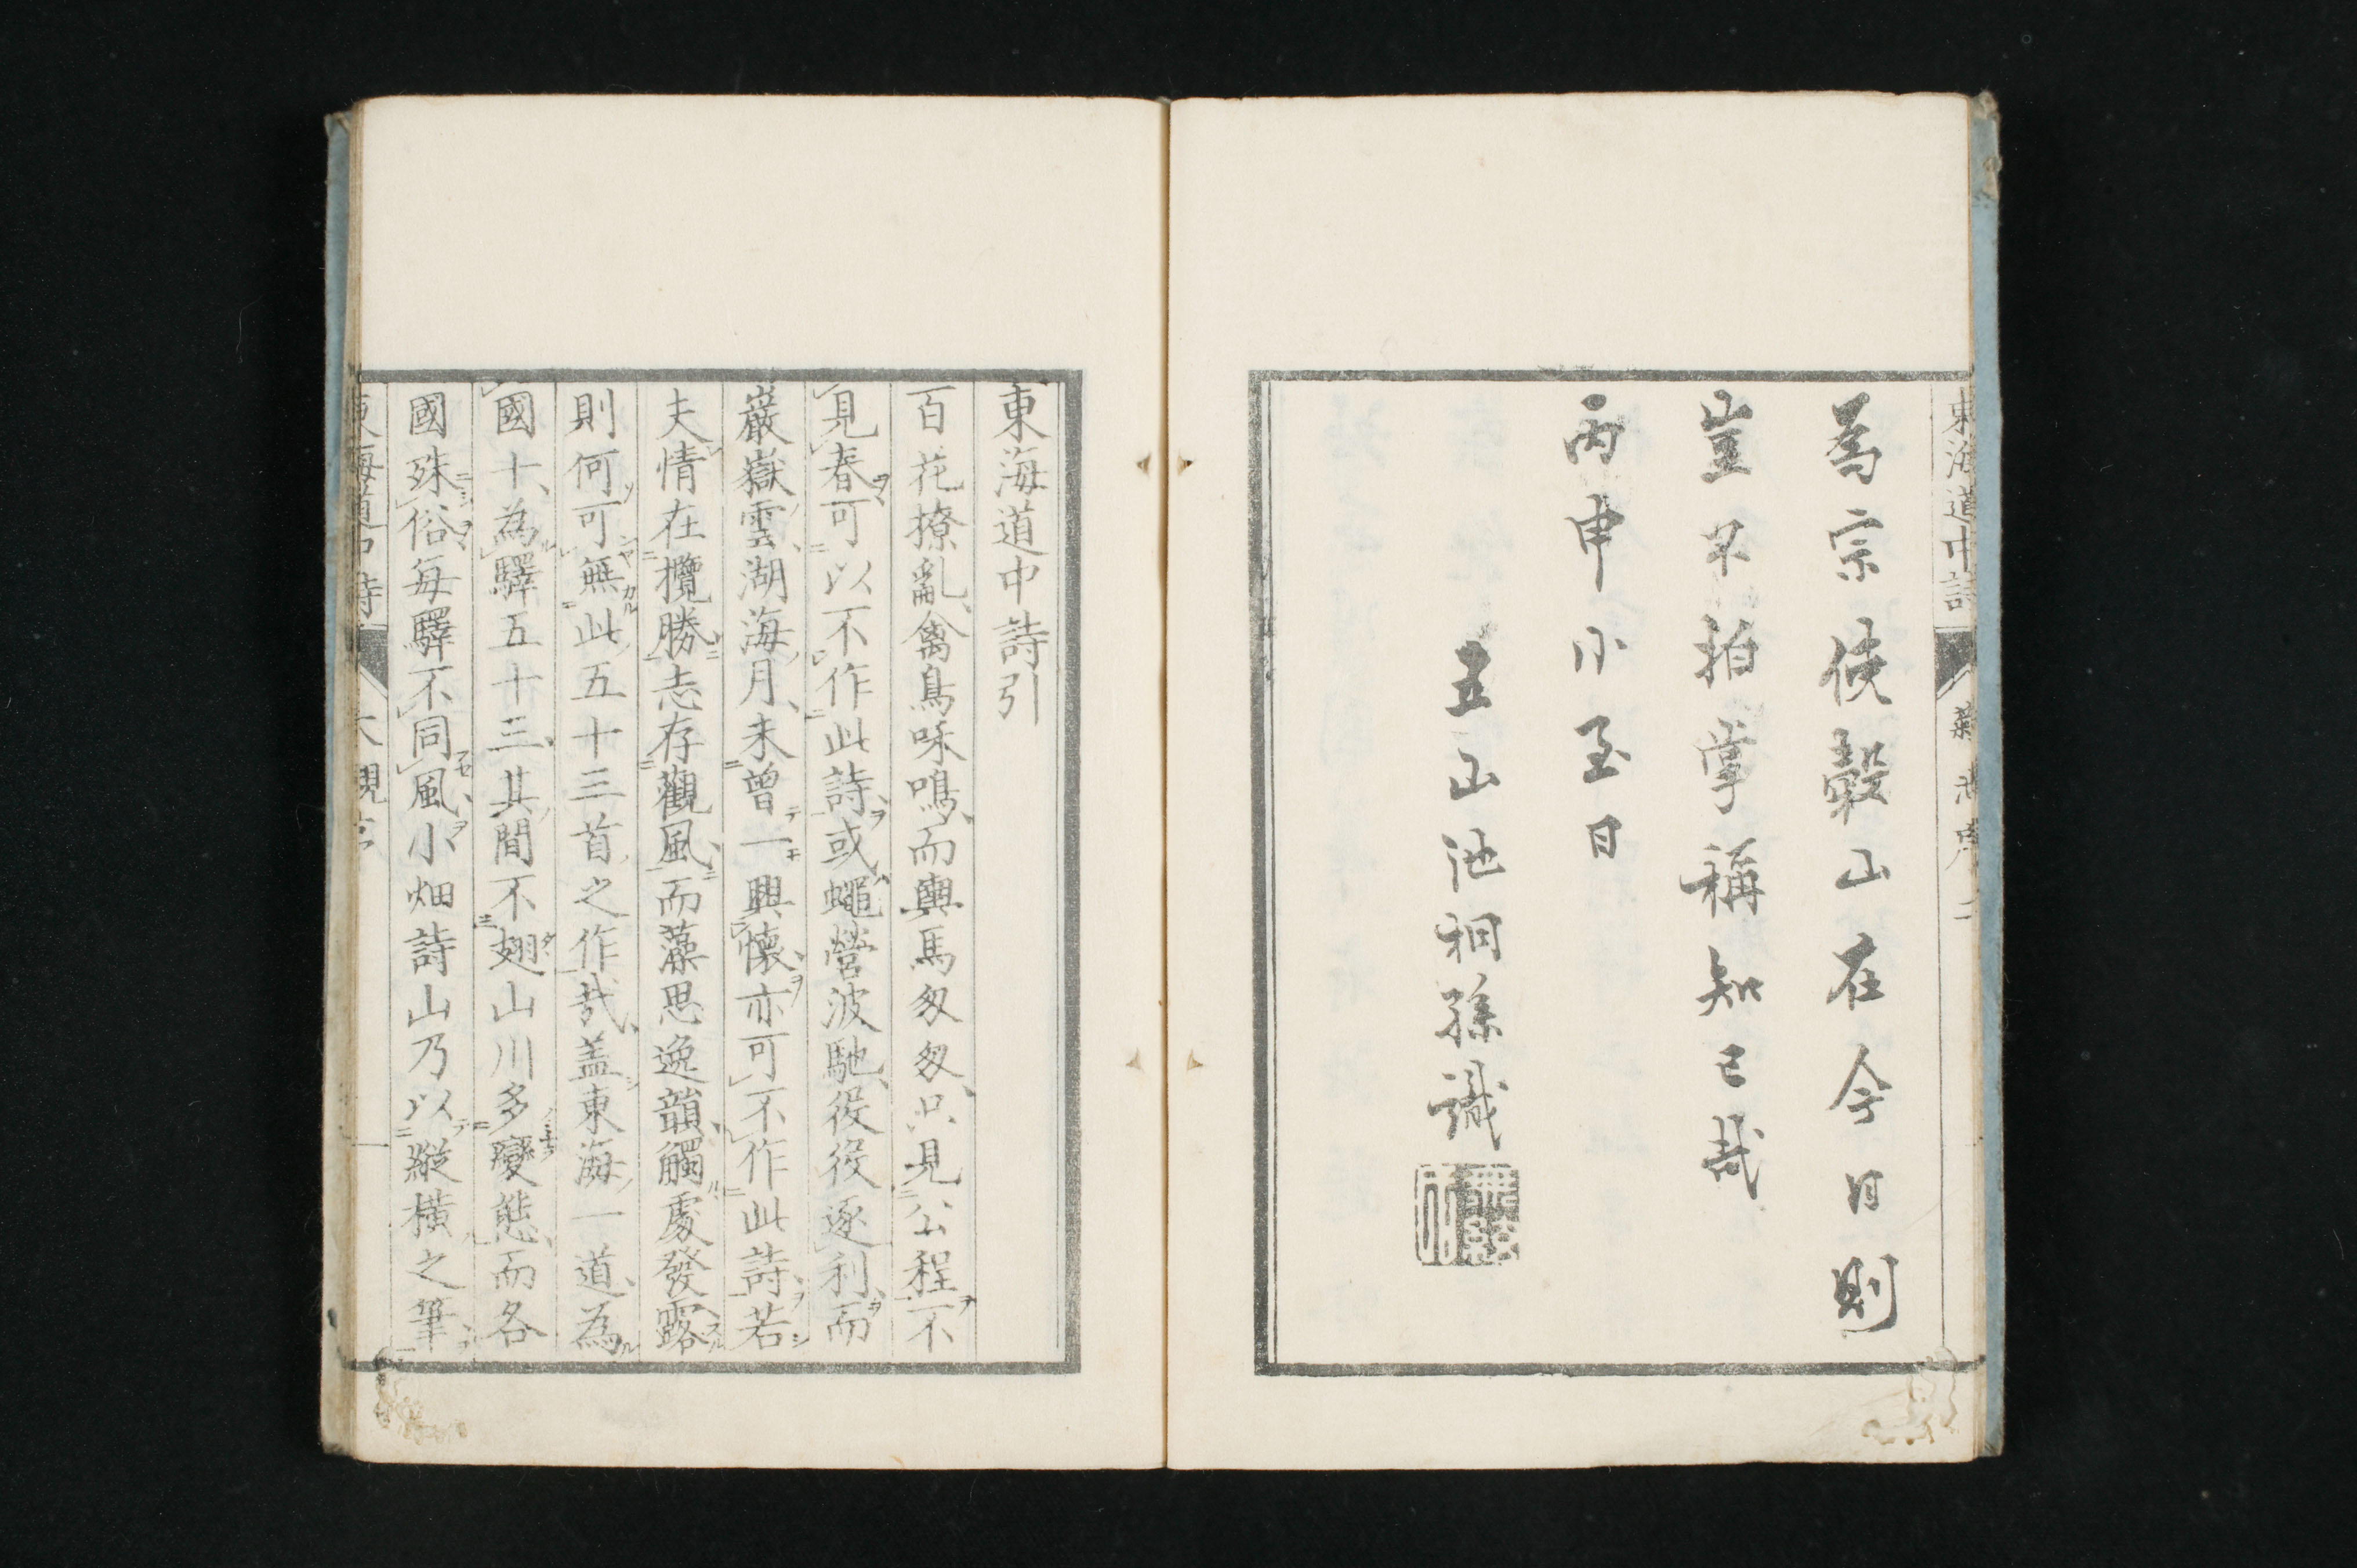 東海道中詩
為宗使轂山在今日則
豈不拍掌稱知己哉
丙申小至日
五山池桐孫識
東海道中詩引
百花撩亂禽鳥哢鳴而輿馬匆匆只見公程不
見春可以不作此詩或蠅營波馳役役逐利而
巖嶽雲湖海月未曾一興懷亦可不作此詩若
夫情在攬勝志存觀風而藻思逸韻觸處發露
則何可無此五十三首之作哉盖東海一道為
國十為驛五十三其間不翅山川多變態而各
國殊俗每驛不同風小畑詩山乃以縱橫之筆
東海道中詩